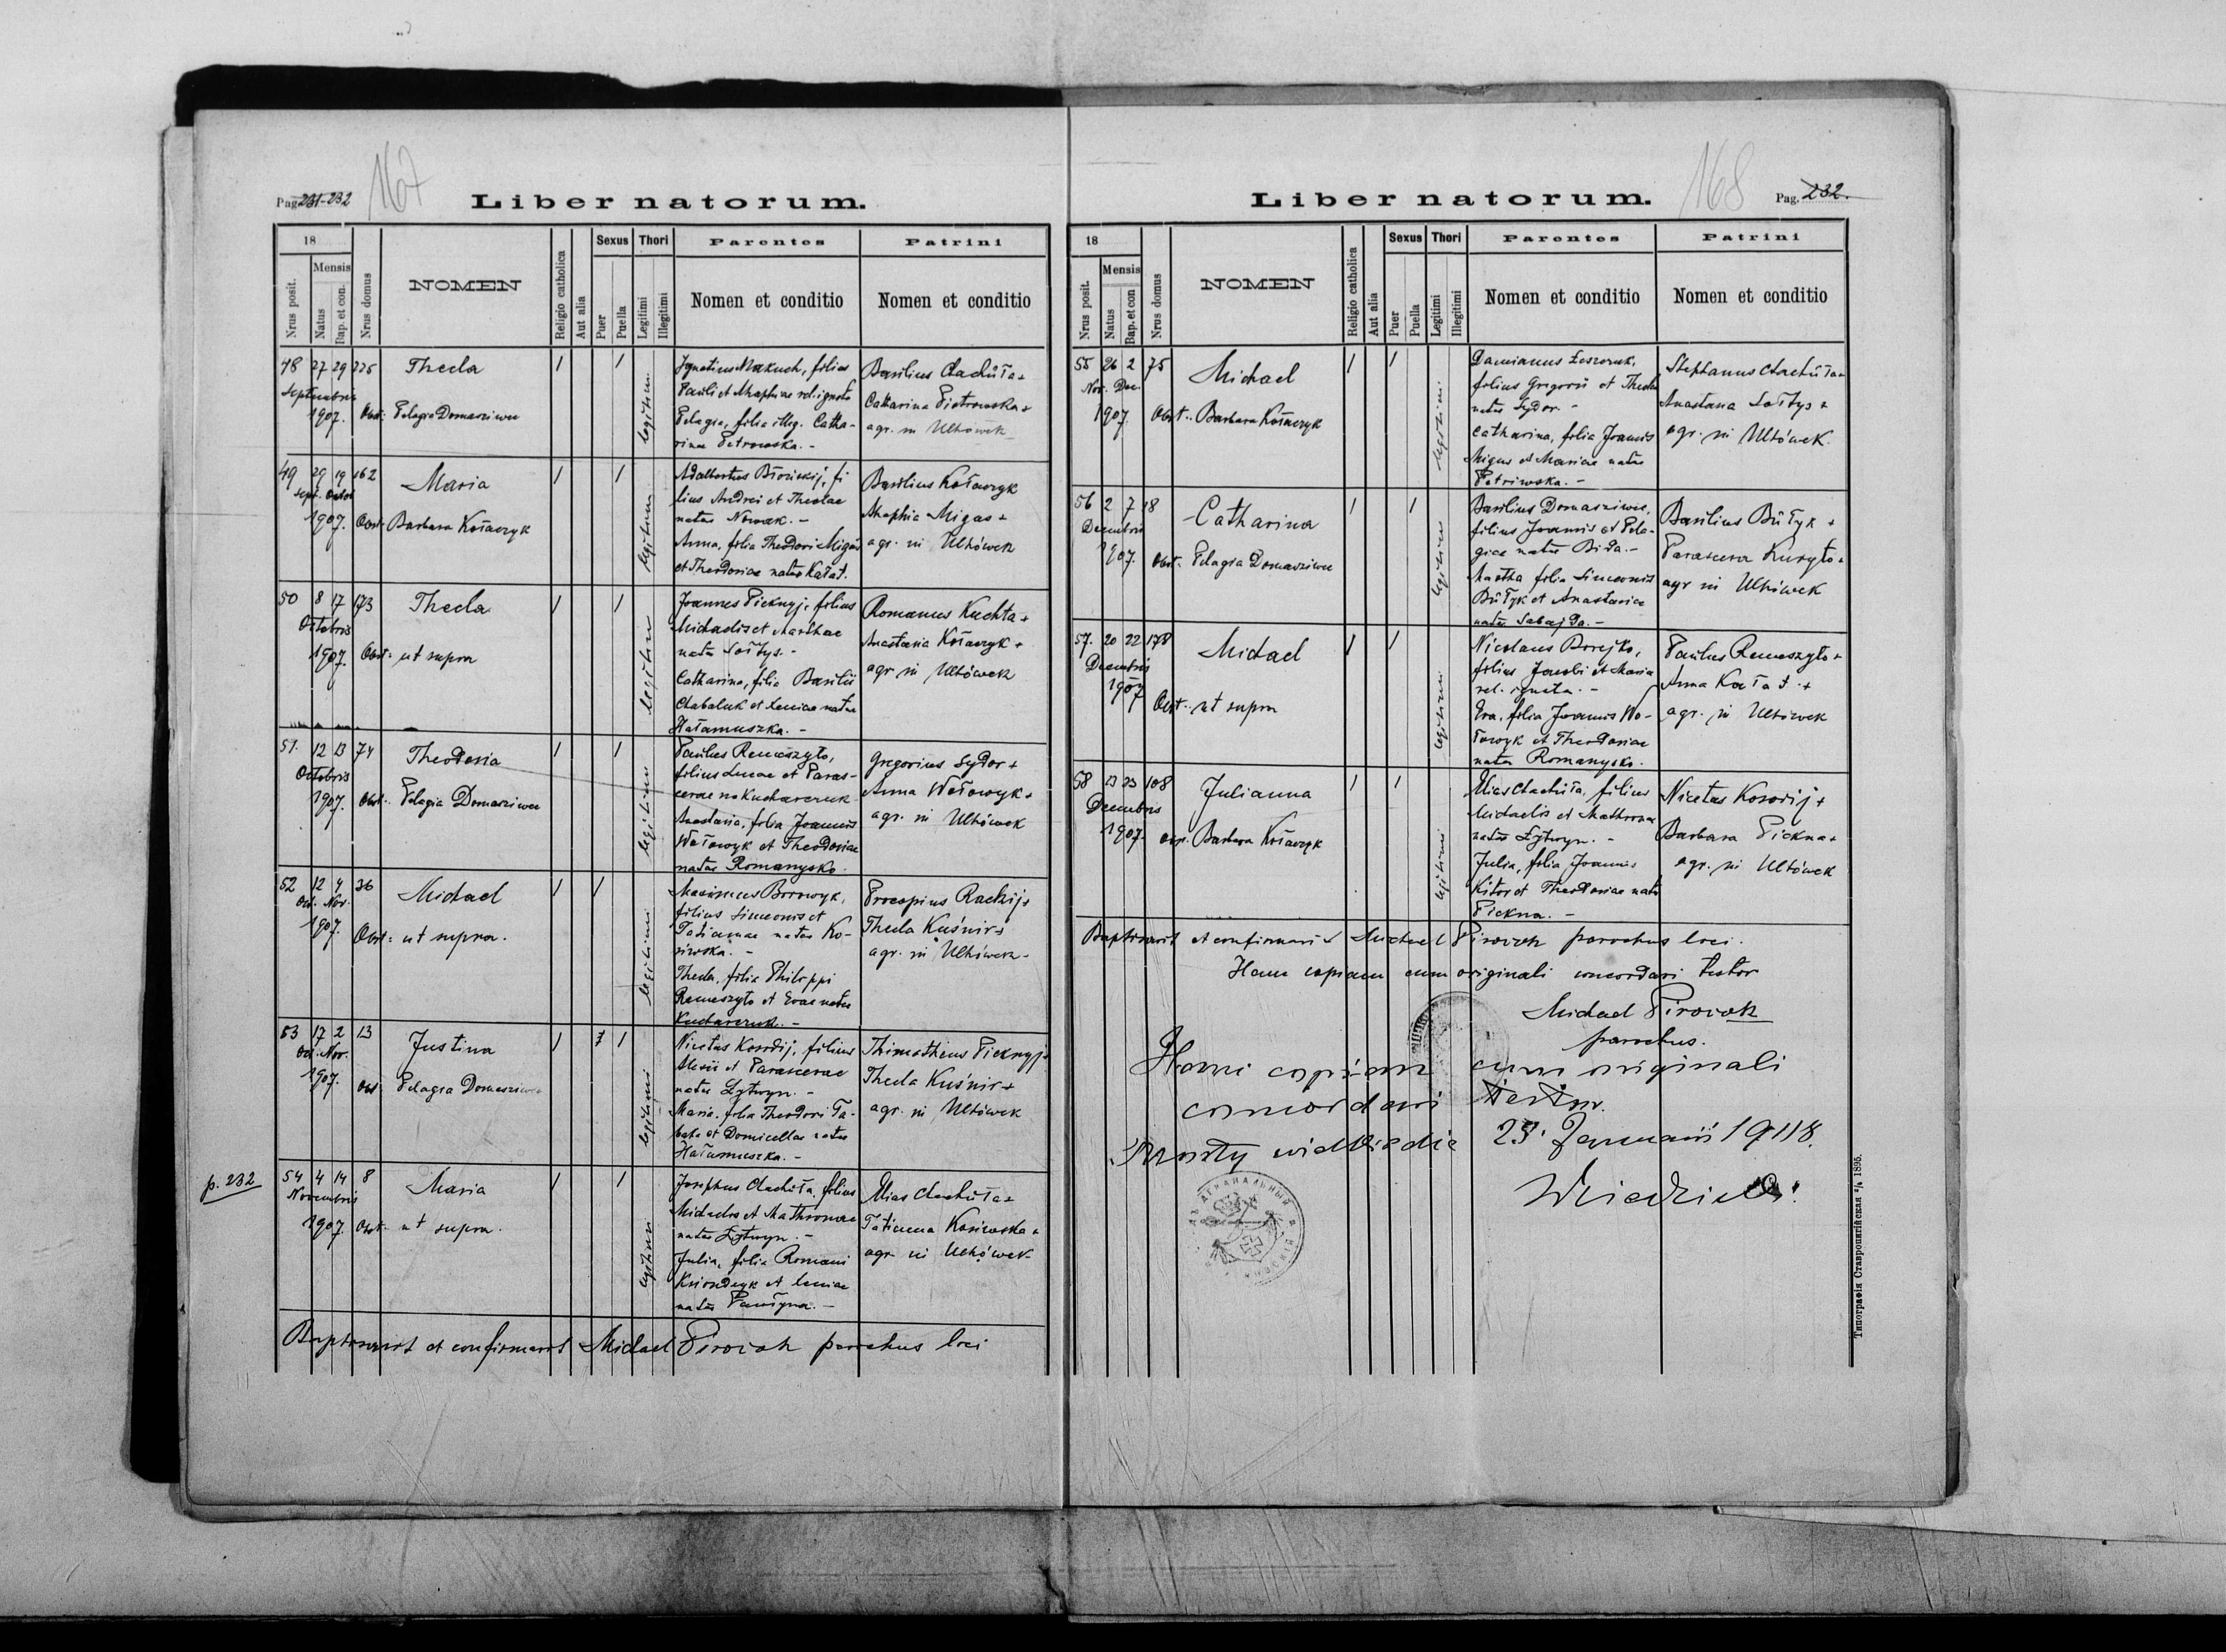 167
Pag. 231-232
Liber natorum.
18
Nrus posit.
Mensis
Natus
Bap. et con.
Nrus domus
NOMEN
Religio catholica
Aut alia
Sexus
Puer
Puella
Thori
Legitimi
Illegitimi
Parentes
Nomen et conditio
Patrini
Nomen et conditio
48 27 29 225 Thecla 1 1
Septembris
1907. Obst. Pelagia Domasziwec
legitimi
Ignatius Makuch, filius
Pauli et Ahaphiae rel. ignota
Pelagia, filia illeg. Catha-
rinae Petrowska. -
Basilius Chachuła +
Catharina Piotrowska +
agr. in Uhtówek
49 29 19 162 Maria 1 1
Sept. Octob
1907. Obst. Barbara Kołaczyk
legitimi
Adalbertus fi
lius Andrei et Theclae
natae Nowak. -
Anna, filia Theodori Migas
et Theodosiae natae Kałat.
Basilius Kołaczyk
Ahaphia Migas +
agr. in Uhtówek
50 8 17 173 Thecla 1 1
Octobris
1907. Obst. ut supra
legitimi
Joannes Pieknyj, filius
Michaelis et Marthae
natae Sołtys. -
Catharina, filia Basilii
Chabaluk et Xeniae natae
Hałamuszka. -
Romanus Kuchta +
Anastasia Kołaczyk +
agr in Uhtówek
51. 12 13 74 Theodosia 1 1
Octobris
1907. Obst. Pelagia Domasziwec
legitimi
Paulus Remeszyło,
filius Lucae et Paras-
cevae na Kucharczuk
Anastasia, filia Joannis
Wołowyk et Theodosiae
natae Romanysko.
Gregorius Sydor +
Anna Wołowyk +
agr. in Uhtówek
52 12 4 36 Michael 1 1
Oct. Nov.
1907. Obst. ut supra.
legitimi
Maximus Borowyk,
filius Simeonis et
Tatianae natae Ko-
siwska. -
Thecla, filia Philippi
Remeszyło et Evae natae
Kucharczuk. -
Procopius Rachij +
Thecla Kuśnir +
agr. in Uhtówek -
53 17 2 13 Justina 1 1
Oct. Nov.
1907. Obst Pelagia Domasziwec
legitimi
Nicetas Kosodij, filius
Alexii et Parascevae
natae Lytwyn. -
Maria, filia Theodori Ta-
bała et Domicellae natae
Hałamuszka. -
Thimotheus Pieknyj +
Thecla Kuśnir +
agr. in Uhtówek
p. 232
54 4 14 8 Maria 1 1
Novembris
1907. Obst. ut supra.
legitimi
Josephus Chachuła, filius
Michaelis et Mathronae
natae Lytwyn. -
Julia, filia Romani
Ksiondzyk et Xeniae
natae
Elias Chachuła +
Tatianna Kosiwska +
agr. in Uhtówek
Baptisavit et confirmavit Michael Pirożok parochus loci
168
Liber natorum.
Pag. 232.
18
Nrus posit.
Mensis
Natus
Bap. et con
Nrus domus
NOMEN
Religio catholica
Aut alia
Sexus
Puer
Puella
Thori
Legitimi
Illegitimi
Parentes
Nomen et conditio
Patrini
Nomen et conditio
55 26 2 75 Michael 1 1
Nov. Dec.
1907. Obst. Barbara Kołaczyk
legitimi
Damianus Leszczuk,
filius Gregorii et Theclae
natae Sydor. -
Catharina, filia Joannis
Migus et Mariae natae
Petriwska. -
Stephanus Chachuła +
Anastasia Sołtys +
agr. in Uhtówek.
56 2 7 18 Catharina 1 1
Decembris
1907. Obst. Pelagia Domasziwec
legitimi
Basilius Domasziwec,
filius Joannis et Pela-
giae natae Bida. -
Martha filia Simeonis
Bułyk et Anastasiae
natae Sabajda. -
Basilius Bułyk +
Parasceva Kuryło +
agr in Uhtówek
57. 20 22 178 Michael 1 1
Decembris
1907 Obst. ut supra
legitimi
Nicolaus Borejko,
filius Jacobi et Maria
rel. ignota. -
Eva, filia Joannis Wo-
łowyk et Theodosiae
natae Romanysko.
Paulus Remeszyło +
Anna Kałat +
agr. in Uhtówek
58 23 25 108 Julianna 1 1
Decembris
1907. Obst. Barbara Kołaczyk
legitimi
Elias Chachuła, filius
Michaelis et Mathronae
natae Lytwyn. -
Julia, filia Joannis
Kitor et Theodosiae natae
Piekna. -
Nicetas Kosodij +
Barbara Piekna +
agr. in Uhtówek
Baptisavit et confirmavit Michael Pirożok parochus loci.
Hanc copiam cum originali concordari testor
Michael Pirożok
parochus.
Hanc copiam cum originali
concordari testor.
die 25. Januarii 1908.
Типографія Ставропигійская 1895.